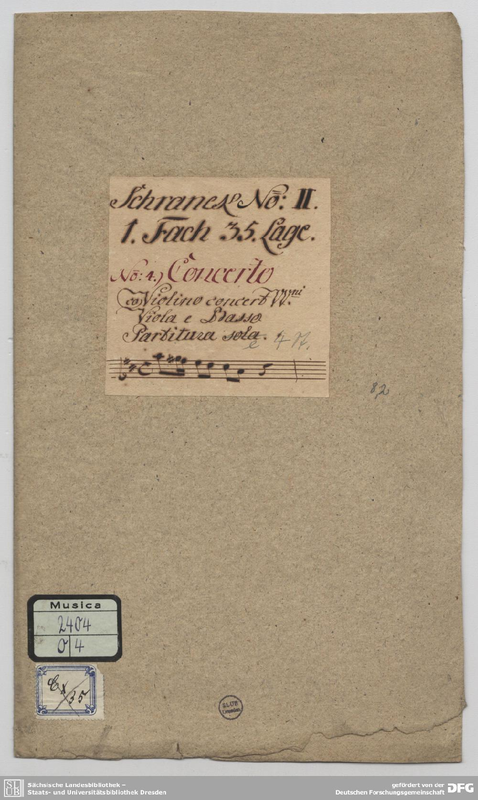 Schranck No: II.
1. Fach 35. Lage.
No: 4.) Concerto
co Violino concert: VVni
Viola e Basso
Partitura sola.
82
Musica
2404
O/4
Cx
35
SLUB
Sächsische Landesbibliothek –
Staats- und Universitätsbibliothek Dresden
gefördert von der
Deutschen Forschungsgemeinschaft
DFG